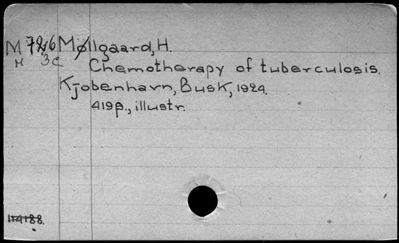 M 726 Møllgaard, H.
H 3c Chemotherapy of tuberculosis.
Kjobenhavn, Busk, 1924.
419p., illustr.